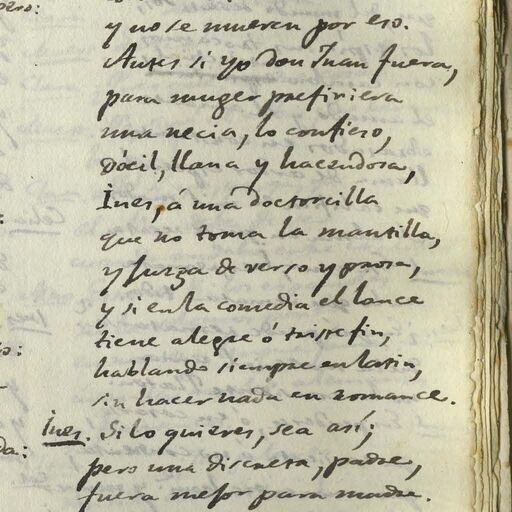 pero:
y no se mueren por eso.
Antes si yo don Juan fuera,
para muger prefiriera
una necia, lo confieso,
Dócil, llana y hacendosa,
Ines, á una doctorcilla
que no toma la mantilla,
y juzga de verso y prosa,
y si en la comedia el lance
tiene alegre ó triste fin,
hablando siempre en latin,
sin hacer nada en romance.
Ines. Si lo quieres, sea así;
pero una discreta, padre,
fuera mejor para madre.